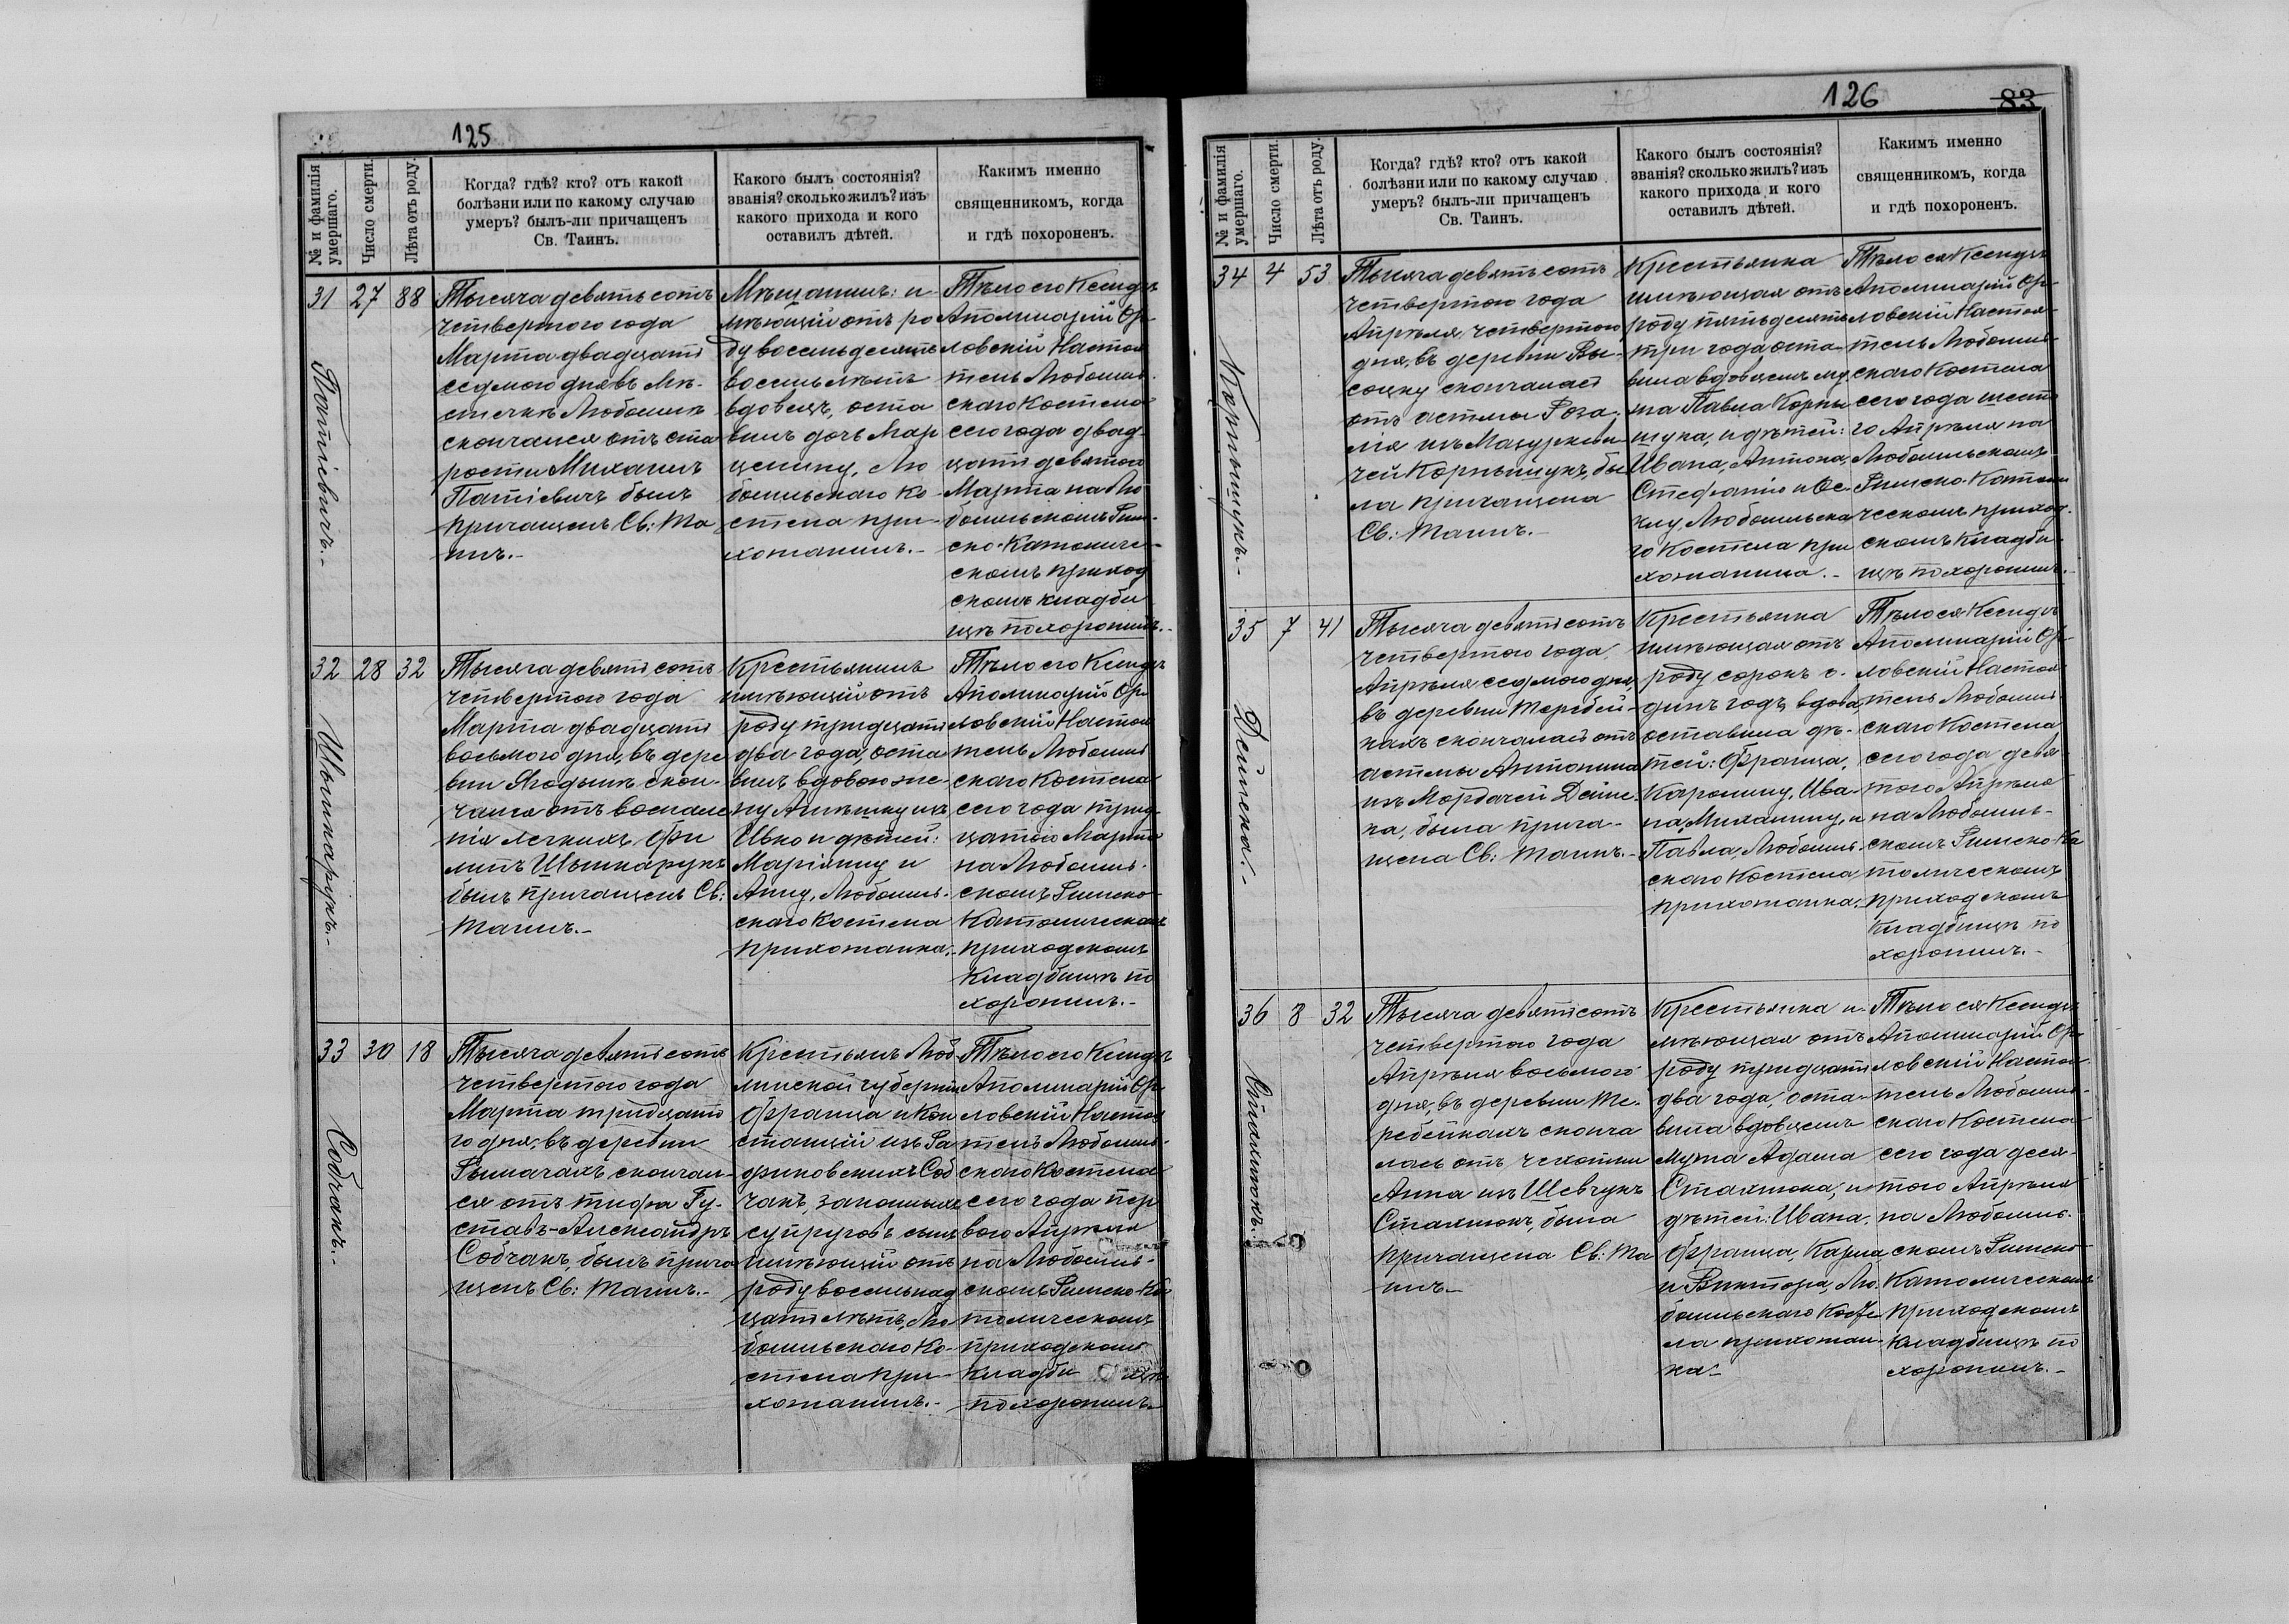 125
№ и фамилія умершаго.
Число смерти.
Лѣта отъ роду.
Когда? гдѣ? кто? отъ какой
болѣзни или по какому случаю
умеръ? былъ-ли причащенъ
Св. Таинъ.
Какого былъ состоянія?
званія? сколько жилъ? изъ
какого прихода и кого
оставилъ дѣтей.
Какимъ именно
священникомъ, когда
и гдѣ похороненъ.
31
27
88
Тысяча девятьсотъ
четвертого года
Марта двадцать
седмого дня въ мѣ-
стечкѣ Любомлѣ
скончался отъ ста
рости Михаилъ
Патіевичъ былъ
причащенъ Св: Та
инъ.-
Мѣщанинъ: и-
мѣющій отъ ро
ду восемьдесятъ
восемь лѣтъ
вдовецъ, оста
вилъ дочь Мар
целину, Лю
бомльскаго ко-
стела при-
хожанинъ.-
Тѣло его Ксендзъ
Аполинарій Ор-
ловскій Настоя
тель Любомль-
скаго Костела
сего года двад-
цать девятого
Марта на Лю
бомльскомъ Рим-
ско-Католиче-
скомъ приход
скомъ кладби
щѣ похоронилъ.-
Патіевичъ.-
32
28
32
Тысяча девятьсотъ
четвертого года
Марта двадцать
восьмого дня, въ дере
вни Ягодинѣ скон-
чался отъ воспале
нія легкихъ Фи
липъ Шынкарукъ
былъ причащенъ Св:
Таинъ.-
Крестьянинъ
имѣющій отъ
роду тридцать
два года, оста
вилъ вдовою же-
ну Агнѣшку изъ
Ивко и дѣтей:
Маріянну и
Анну, Любомль-
скаго Костела
прихожанка.-
Тѣло его Ксендзъ
Аполинарій Ор-
ловскій Настоя
тель Любомль
скаго Костела
сего года трид-
цатого Марта
на Любомль-
скомъ Римско-
Католическомъ
приходскомъ
Кладбищѣ по
хоронилъ.-
Шынкарукъ.-
33
30
18
Тысяча девятьсотъ
четвертого года
Марта тридцато
го дня, въ деревни
Рымачахъ скончал-
ся отъ тифа Гу-
ставъ-Александръ
Собчакъ, былъ прича
щенъ Св: Таинъ.-
Крестьянъ Люб-
линской губерніи
Франца и Кон
станціи изъ Ра
фиковскихъ Соб
чакъ, законныхъ
супруговъ сынъ
имѣющій отъ
роду восемьнад
цать лѣтъ, Лю
бомльскаго Ко-
стела при-
хожанинъ.-
Тѣло его Ксендзъ
Аполинарій Ор-
ловскій Настоя
тель Любомль-
скаго Костела
сего года пер
вого Апрѣля
на Любомль-
скомъ Римско-Ка
толическомъ
приходскомъ
Кладби щѣ
похоронилъ.-
Собчакъ.-
126
83
№ и фамилія умершаго.
Число смерти.
Лѣта отъ роду.
Когда? гдѣ? кто? отъ какой
болѣзни или по какому случаю
умеръ? былъ-ли причащенъ
Св. Таинъ.
Какого былъ состоянія?
званія? сколько жилъ? изъ
какого прихода и кого
оставилъ дѣтей.
Какимъ именно
священникомъ, когда
и гдѣ похороненъ.
34
4
53
Тысяча девятьсотъ
четвертого года
Апрѣля четвертого
дня, въ деревни Вы-
соцку скончалась
отъ астмы Роза-
лія изъ Мазуркеви-
чей Корныщукъ, бы
ла причащена
Св: Таинъ.-
Крестьянка
имѣющая отъ
роду пятьдесятъ
три года оста-
вила вдовцемъ му
жа Павла Корны
щука, и дѣтей:
Ивана, Антона,
Стефанію и Ѳе-
клу, Любомльска
го Костела при
хожанка.-
Тѣло ея Ксендзъ
Аполинарій Ор-
ловскій Настоя-
тель Любомль-
скаго Костела
сего года шесто
го Апрѣля на
Любомльскомъ
Римско-Католи
ческомъ приход-
скомъ Кладби-
щѣ похоронилъ.-
Корныщукъ.-
35
7
41
Тысяча девятьсотъ
четвертого года
Апрѣля седмого дня,
въ деревни Теребей-
кахъ скончалась отъ
астмы Антонина
изъ Мордачей Дейне-
ка, была прича-
щена Св: Таинъ.-
Крестьянка
имѣющая отъ
роду сорокъ о-
динъ годъ вдова,
оставила дѣ-
тей: Франца,
Каролину, Ива-
на, Михалину, и
Павла, Любомль-
скаго Костела
прихожанка.-
Тѣло ея Ксендзъ
Аполинарій Ор-
ловскій Настоя
тель Любомль
скаго Костела
сего года девя-
того Апрѣля
на Любомль-
скомъ Римско-Ка
толическомъ
приходскомъ
Кладбищѣ по
хоронилъ.-
Дейнека.-
36
8
32
Тысяча девятьсотъ
четвертого года
Апрѣля восьмого
дня, въ деревни Те-
ребейкахъ сконча
лась отъ чехотки
Анна изъ Шевчукъ
Стахнюкъ, была
причащена Св: Та
инъ.-
Крестьянка и-
мѣющая отъ
роду тридцать
два года, оста-
вила вдовцемъ
мужа Адама
Стахнюка, и
дѣтей: Ивана,
Франца, Карла
и Виктора, Лю-
бомльскаго Косте
ла прихожан-
ка.-
Тѣло ея Ксендзъ
Аполинарій Ор-
ловскій Настоя-
тель Любомль-
скаго Костела
сего года деся-
того Апрѣля
на Любомль-
скомъ Римско-
Католическомъ
приходскомъ
Кладбищѣ по
хоронилъ.-
Стахнюкъ.-